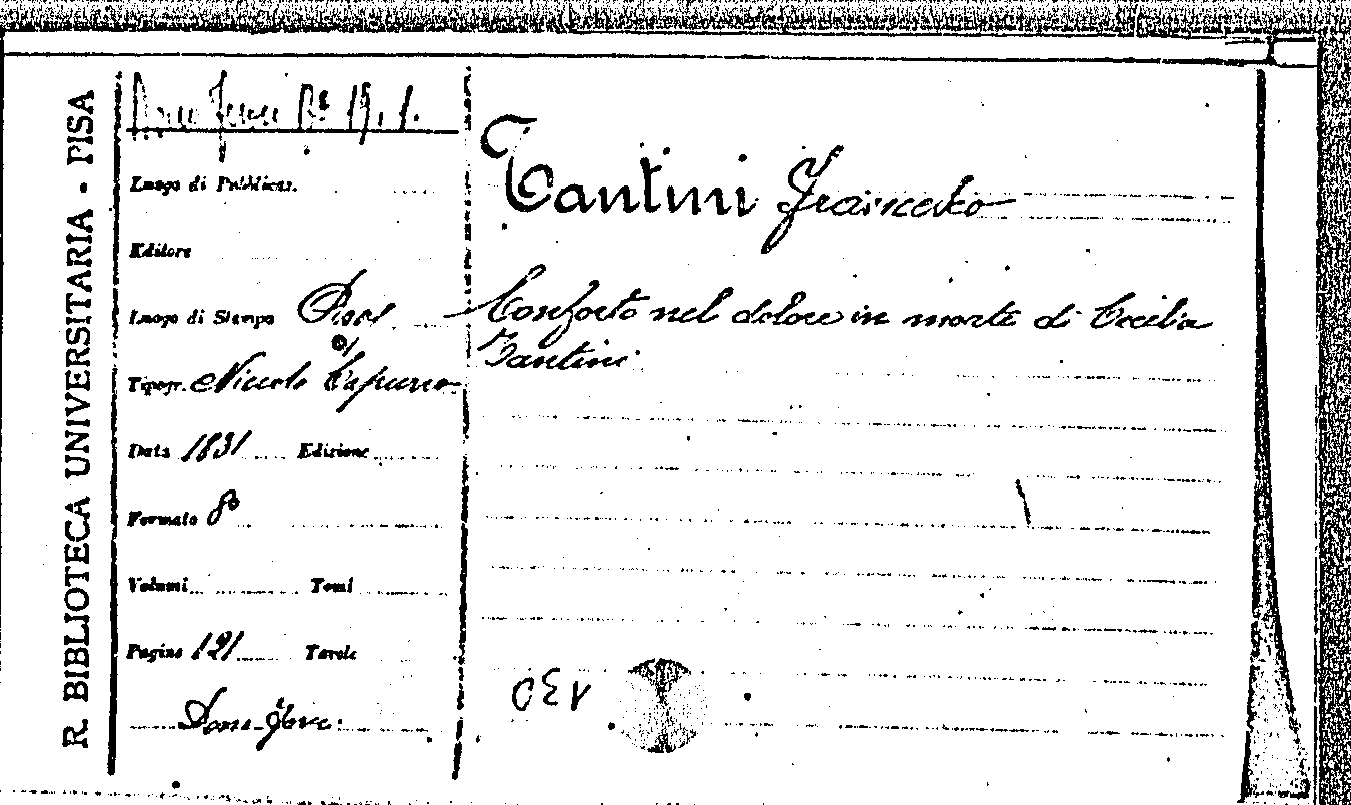 R. BIBLIOTECA UNIVERSITARIA - PISA
Luogo di Pubblicaz.
Editore
Luogo di Stampa Pisa
Tipogr. Niccolo Capurro
Data 1831 Edizione
Formato 8º
Volumi Tomi
Pagine 121 Tavole
Tantini Francesco
Conforto nel dolore in morte di Cecilia
Tantini